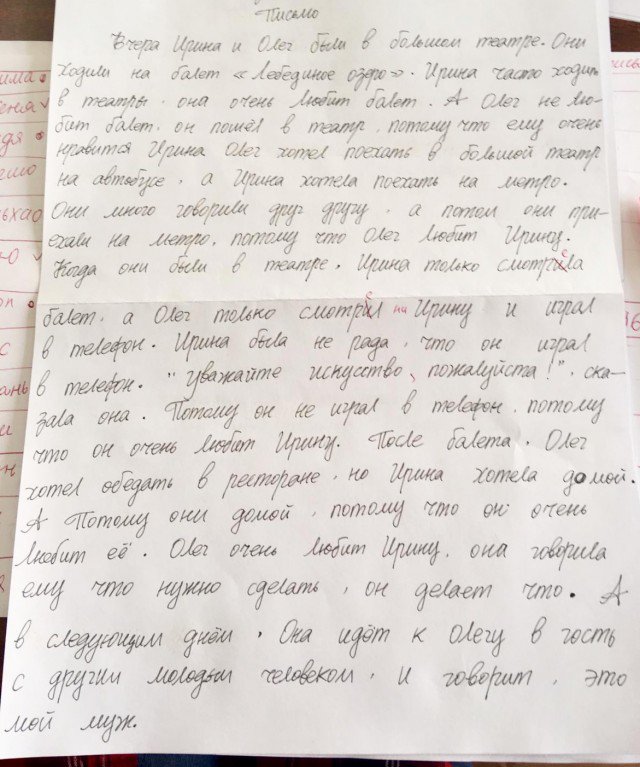 Письмо
Вчера Ирина и Олег были в большом театре. Они
ходили на балет «Лебединое озеро». Ирина часто ходит
в театры, она очень любит балет. А Олег не лю-
бит балет, он пошёл в театр, потому что ему очень
нравится Ирина Олег хотел поехать в большой театр
на автобусе, а Ирина хотела поехать на метро.
Они много говорили друг другу, а потом они при-
ехали на метро, потому что Олег любит Ирину.
Когда они были в театре, Ирина только смотрела
балет, а Олег только смотрел на Ирину и играл
в телефон. Ирина была не рада, что он играл
в телефон. "Уважайте искусство, пожалуйста!", ска-
зала она. Потому он не играл в телефон, потому
что он очень любит Ирину. После балета, Олег
хотел обедать в ресторане, но Ирина хотела домой.
А Потому они домой, потому что он очень
любит её. Олег очень любит Ирину, она говорила
ему что нужно сделать, он делает что. А
в следующим днём, Она идёт к Олегу в гость
с другим молодым человеком, и говорит, это
мой муж.